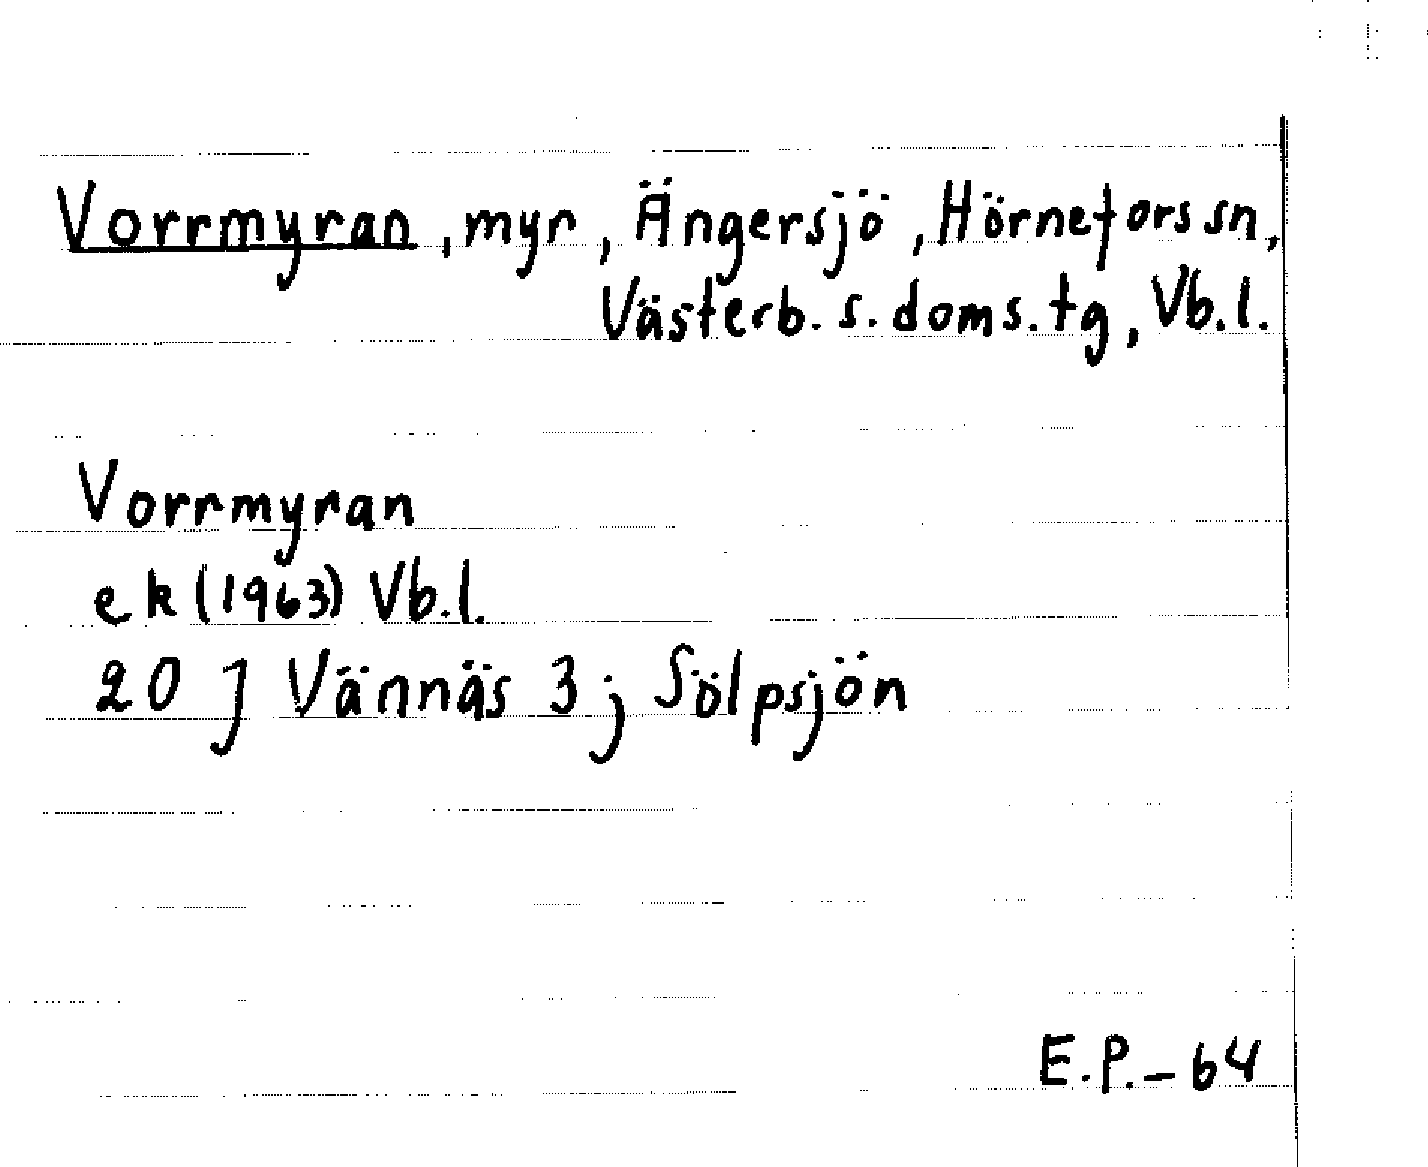 Vorrmyran, myr, Ängersjö, Hörnefors sn,
Västerb. s. doms. tg, Vb. l.
Vorrmyran
ek (1963) Vb. l.
20 J Vännäs 3 j Sölpsjön
E.P. – 64